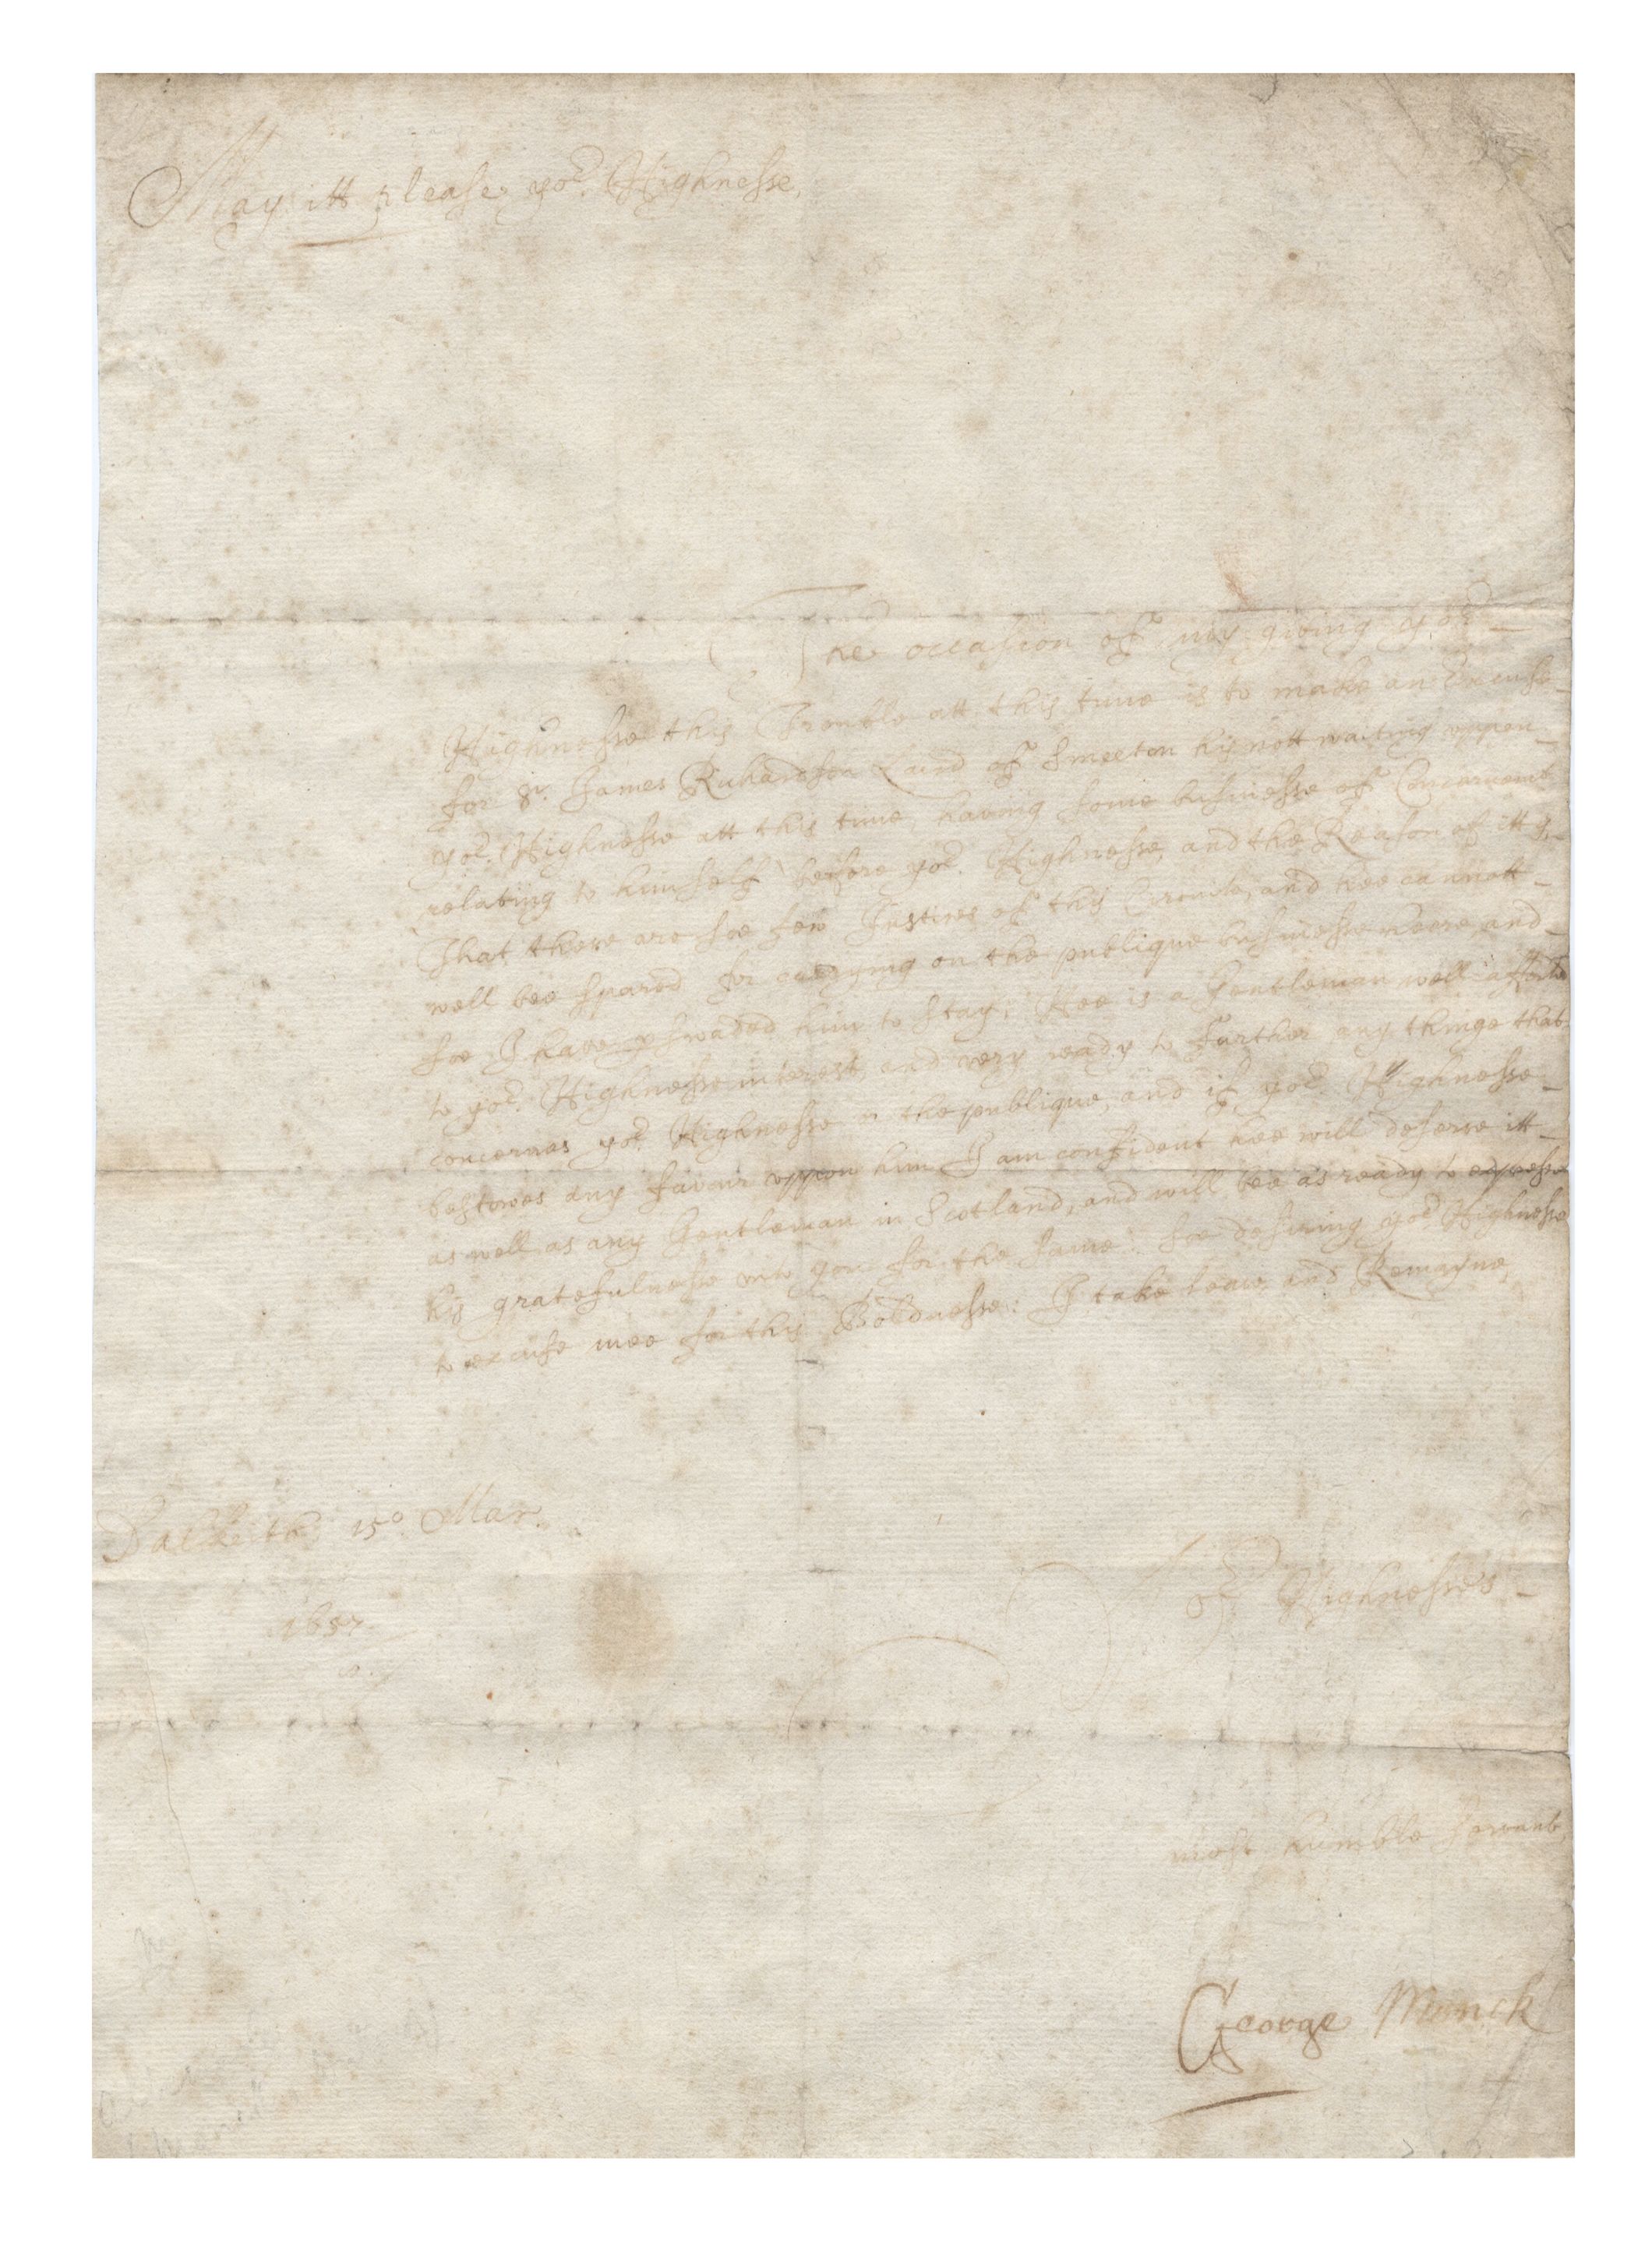 May itt please yor. Highnesse,
The occasion of my giving yor
Highnesse this Trouble att this time is to make an Excuse
for Sr. James Richardson Laird of Smeeton his nott waiting uppon
yor. Highnesse att this time, having some businesse of Concernemt
relating to himself before yor. Highnesse, and the Reason of itt is,
That there are soe few Justices of this and hee cannott
well bee spared for carrying on the publique businesse heere, and
soe I have pswaded him to stay; Hee is a Gentleman well affected
to yor. Highnesse interest, and very ready to further any thinge that
concernes yor. Highnesse or the publique, and if yor. Highnesse
bestowes any favour uppon him I am confident hee will deserve itt
as well as any Gentleman in Scotland, and will bee as ready to expresse
his gratefulnesse unto you for the same: Soe desiring yor. Highnesse
to excuse mee for this Boldnesse: I take leave and Remayne,
Dalkeith 15o Mar.
1657
Yor. Highnesses
most humble Servant,
George Monck